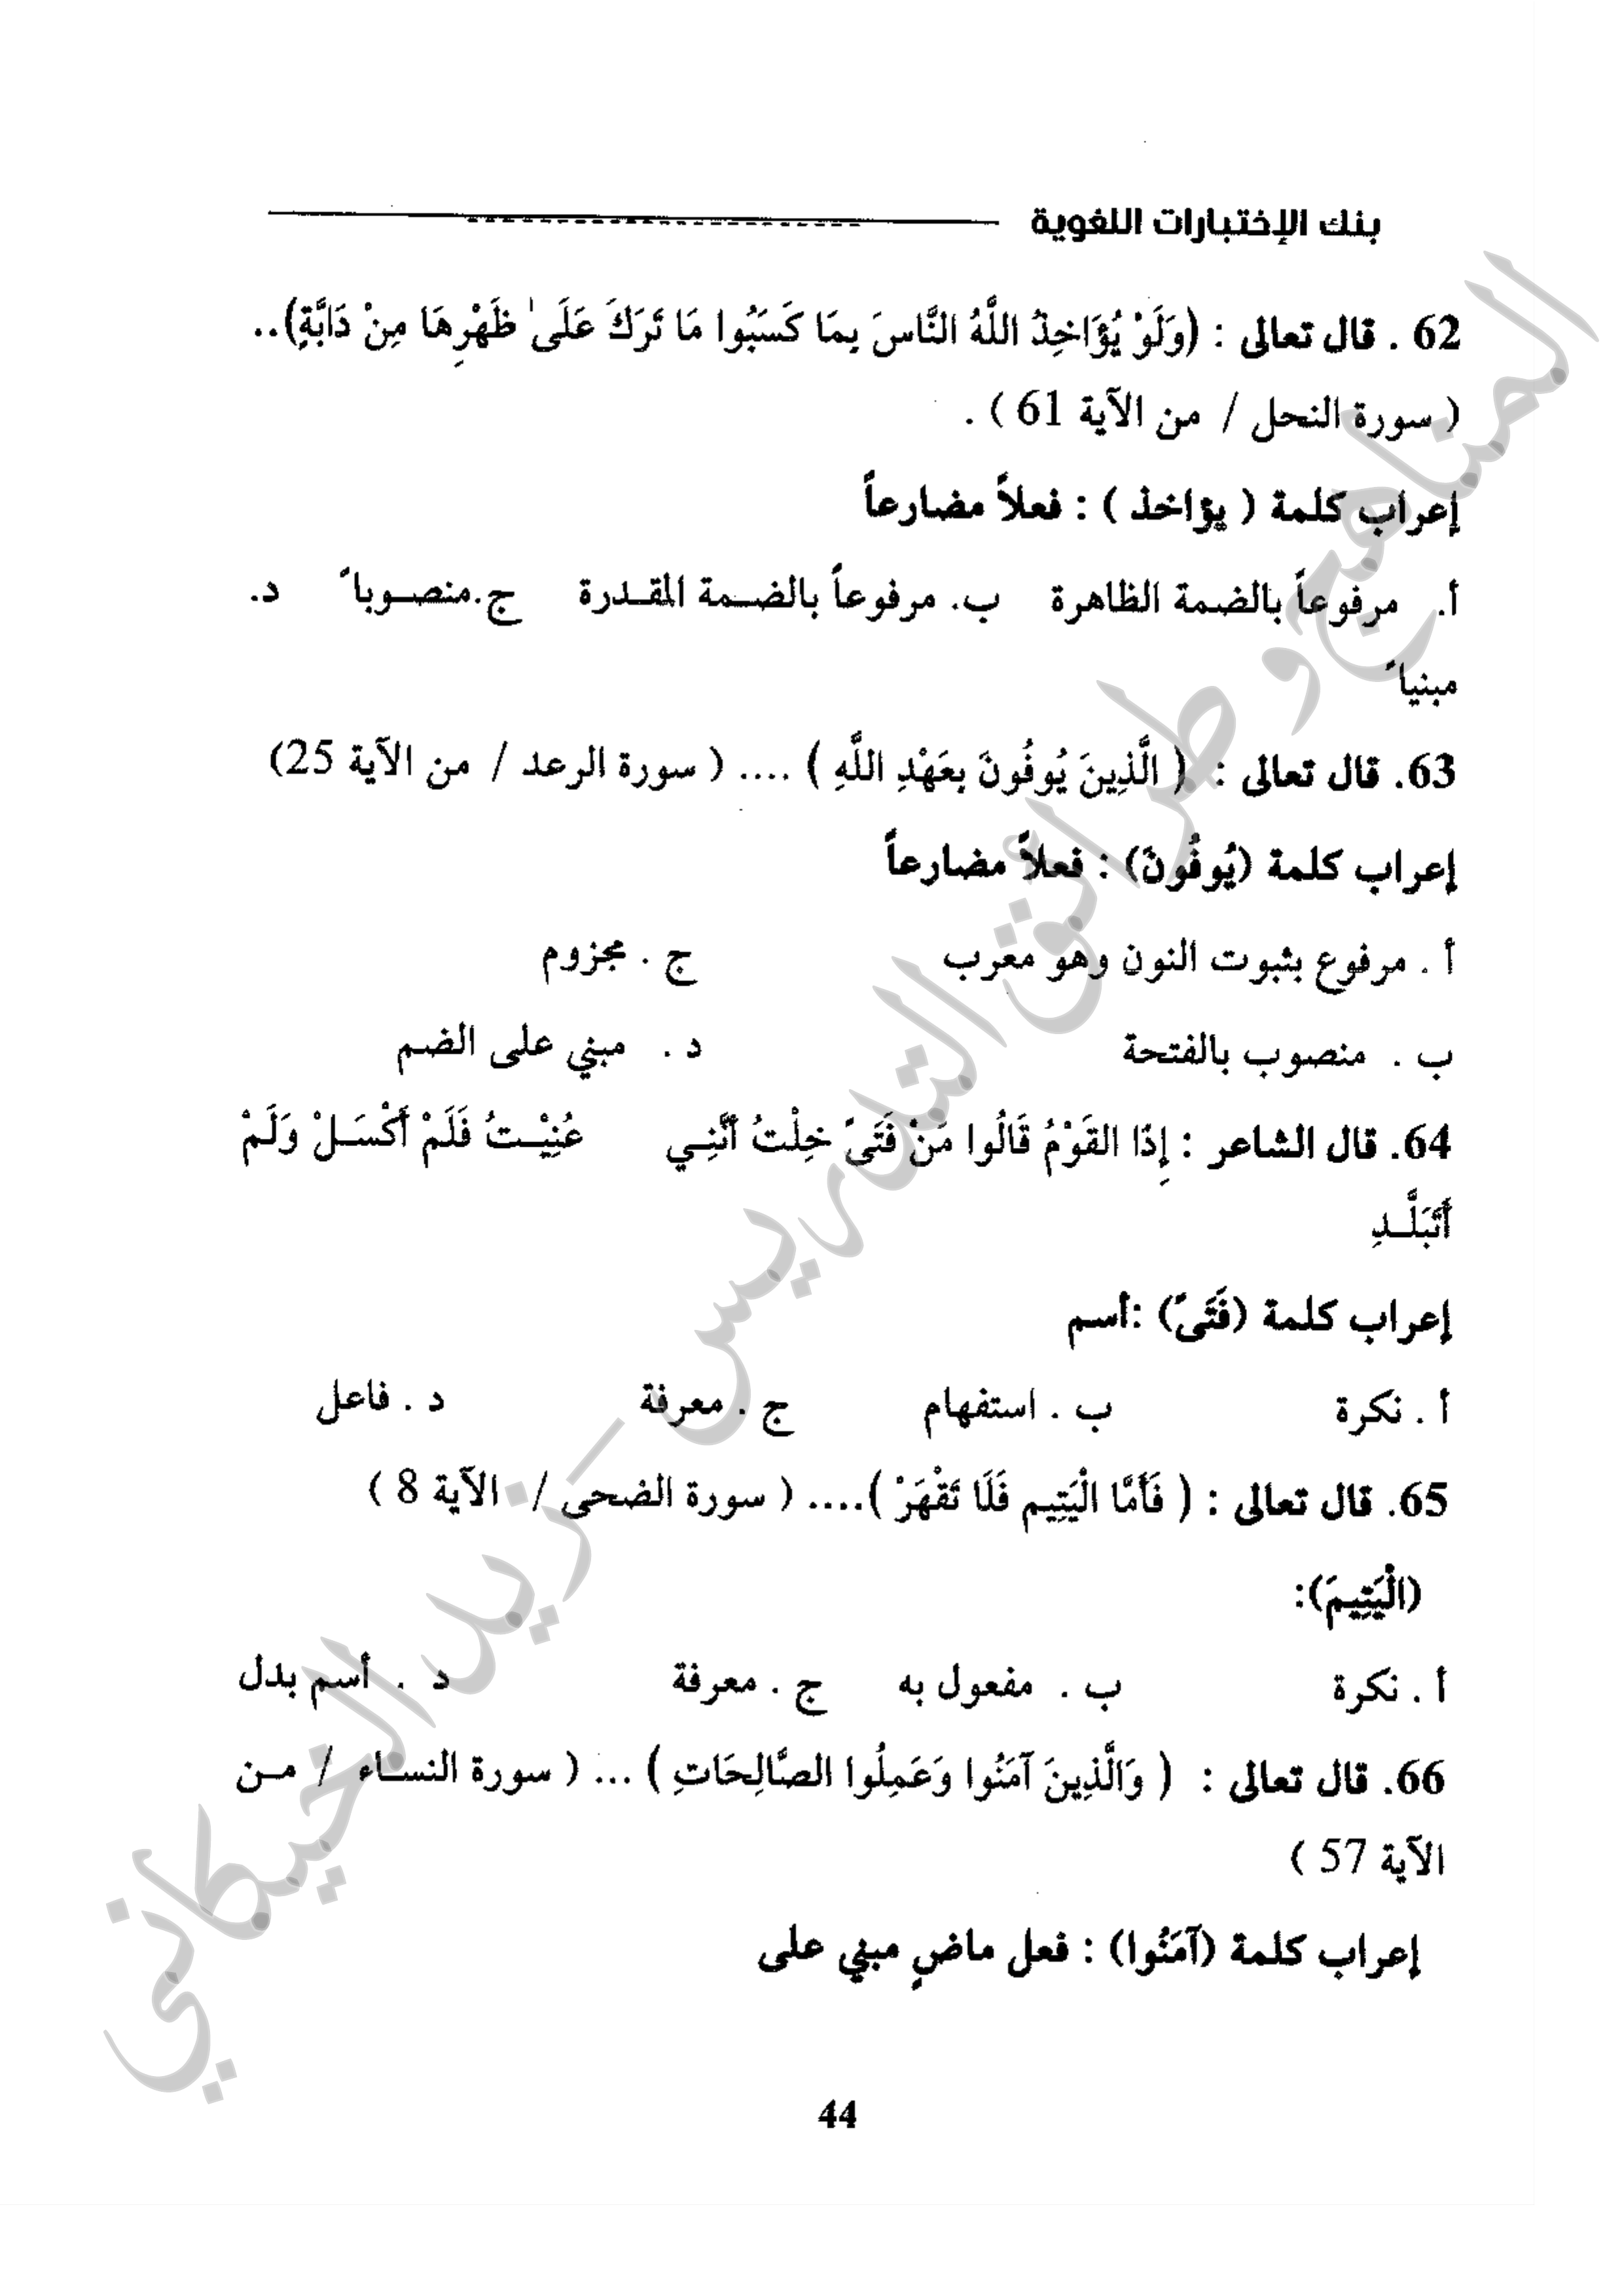 بنك الإختبارات اللغوية
62 . قال تعالى : (وَلَوْ يُؤَاخِذُ اللَّهُ النَّاسَ بِمَا كَسَبُوا مَا تَرَكَ عَلَىٰ ظَهْرِهَا مِنْ دَابَّةٍ)..
( سورة النحل / من الآية 61 ) .
إعراب كلمة ( يؤاخذ ) : فعلاً مضارعاً
أ. مرفوعاً بالضمة الظاهرة ب. مرفوعاً بالضـمة المقـدرة ج.منصـوبا ً د.
مبنيا ً
63. قال تعالى : ( الَّذِينَ يُوفُونَ بِعَهْدِ اللَّهِ ) .... ( سورة الرعد / من الآية 25)
إعراب كلمة (يُوفُونَ) : فعلاً مضارعاً
أ . مرفوع بثبوت النون وهو معرب ج . مجزوم
ب . منصوب بالفتحة د . مبني على الضم
64. قال الشاعر : إِذَا القَوْمُ قَالُوا مَنْ فَتَىً خِلْتُ أَنَّنِـي عُنِيْـتُ فَلَمْ أَكْسَـلْ وَلَمْ
أَتَبَلَّـدِ
إعراب كلمة (فَتَىً) :أسم
أ . نكرة ب . استفهام ج . معرفة د . فاعل
65. قال تعالى : ( فَأَمَّا الْيَتِيم فَلَا تَقْهَرْ ).... ( سورة الضحى / الآية 8 )
(الْيَتِيمَ):
أ . نكرة ب . مفعول به ج . معرفة د . أسم بدل
66. قال تعالى : ( وَالَّذِينَ آمَنُوا وَعَمِلُوا الصَّالِحَاتِ ) ... ( سورة النسـاء / مـن
الآية 57 )
إعراب كلمة (آمَنُوا) : فعل ماضٍ مبني على
44
المناهج وطرائق التدريس – زيد الخيكاني